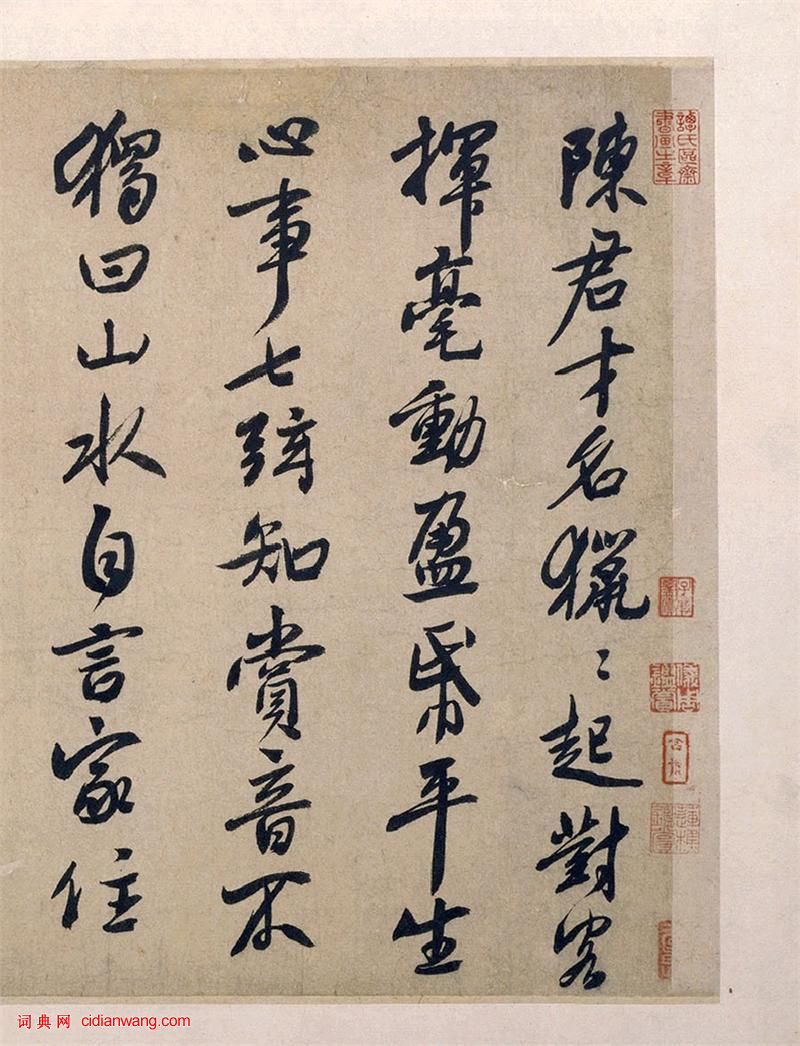 陳君才名獵〻起對客
揮毫動盈帋平生
心事七弦知賞音不
獨曰山水自言家住
譚氏區齋書畫之章
词典网 cidianwang.com